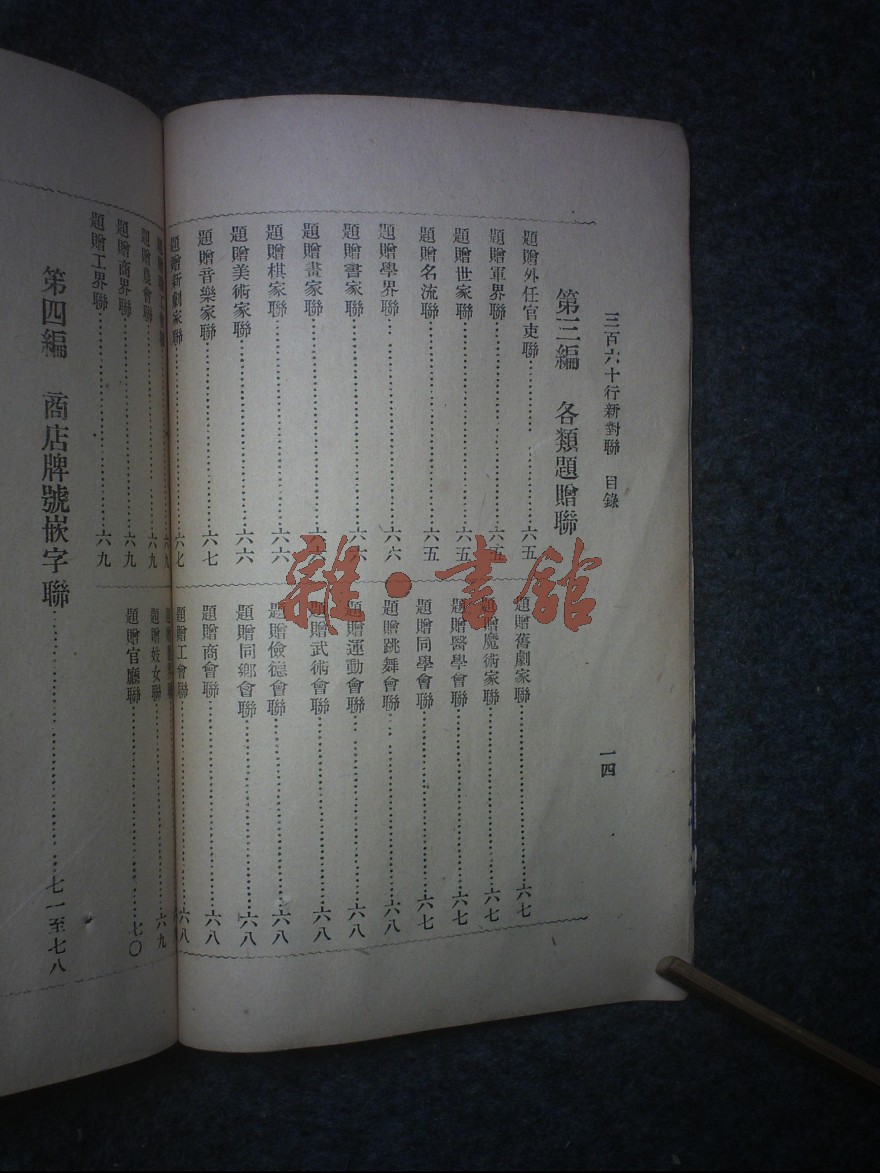 三百六十行新對聯　目錄
一四
第三編　各類題贈聯
題贈外任官吏聯……六五
題贈軍界聯……六五
題贈世家聯……六五
題贈名流聯……六五
題贈學界聯……六六
題贈書家聯……六六
題贈畫家聯……六六
題贈棋家聯……六六
題贈美術家聯……六六
題贈音樂家聯……六七
題贈新劇家聯……六七
題贈舊劇家聯……六七
題贈魔術家聯……六七
題贈醫學會聯……六七
題贈同學會聯……六七
題贈跳舞會聯……六八
題贈運動會聯……六八
題贈武術會聯……六八
題贈儉德會聯……六八
題贈同鄉會聯……六八
題贈商會聯……六八
題贈工會聯……六八
題贈農會聯……六九
題贈商界聯……六九
題贈工界聯……六九
題贈妓女聯……六九
題贈官廳聯……七〇
第四編　商店牌號嵌字聯……七一至七八
雜·書舘